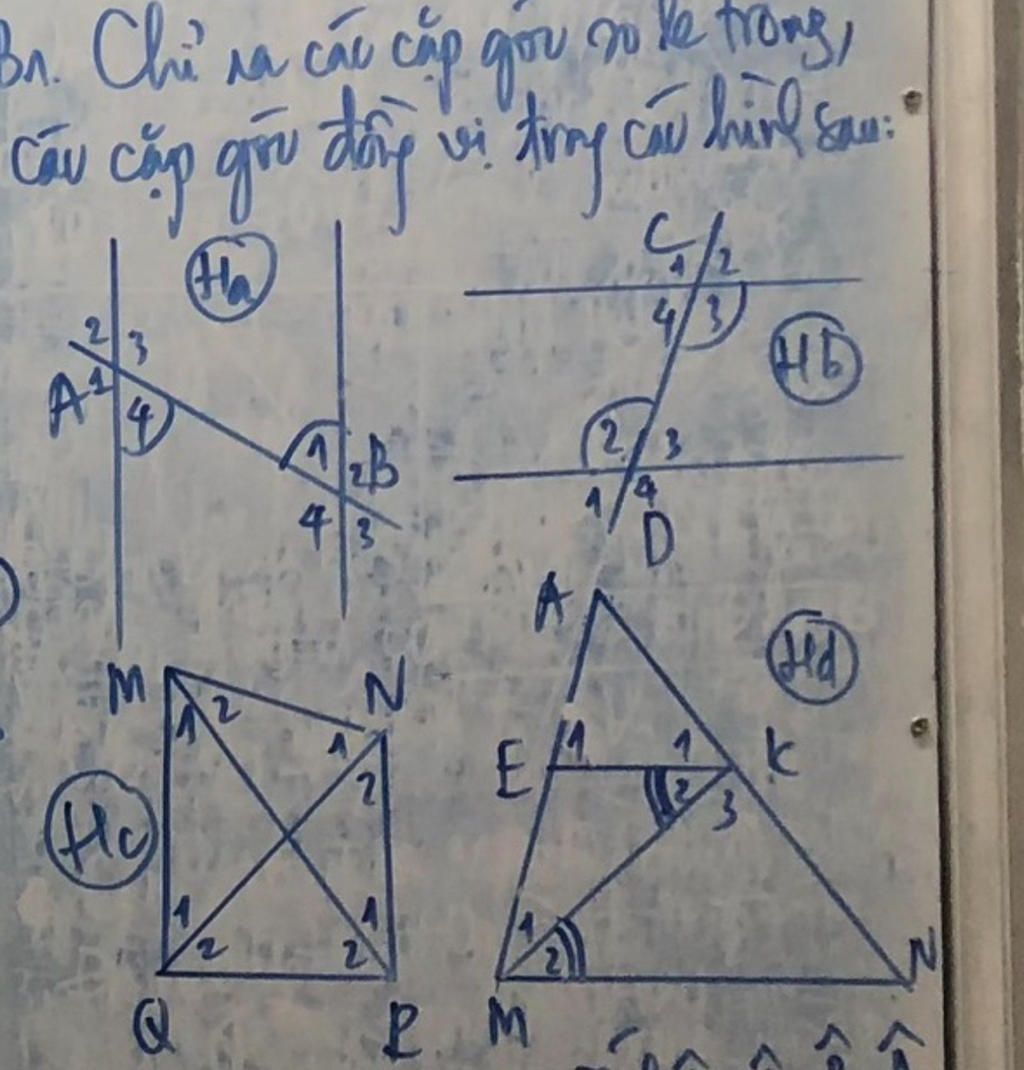 B1. Chỉ ra các cặp góc so le trong,
các cặp góc đồng vị trong các hình sau:
Ha
2 3
A 1 4
1 2 B
4 3
C 1 2
4 3
Hb
2 3
1 4
D
M 1 2
N 1 2
Hc
Q 1 2
P 1 2
A
Hd
E 1
1 K
2 3
M 1 2
N